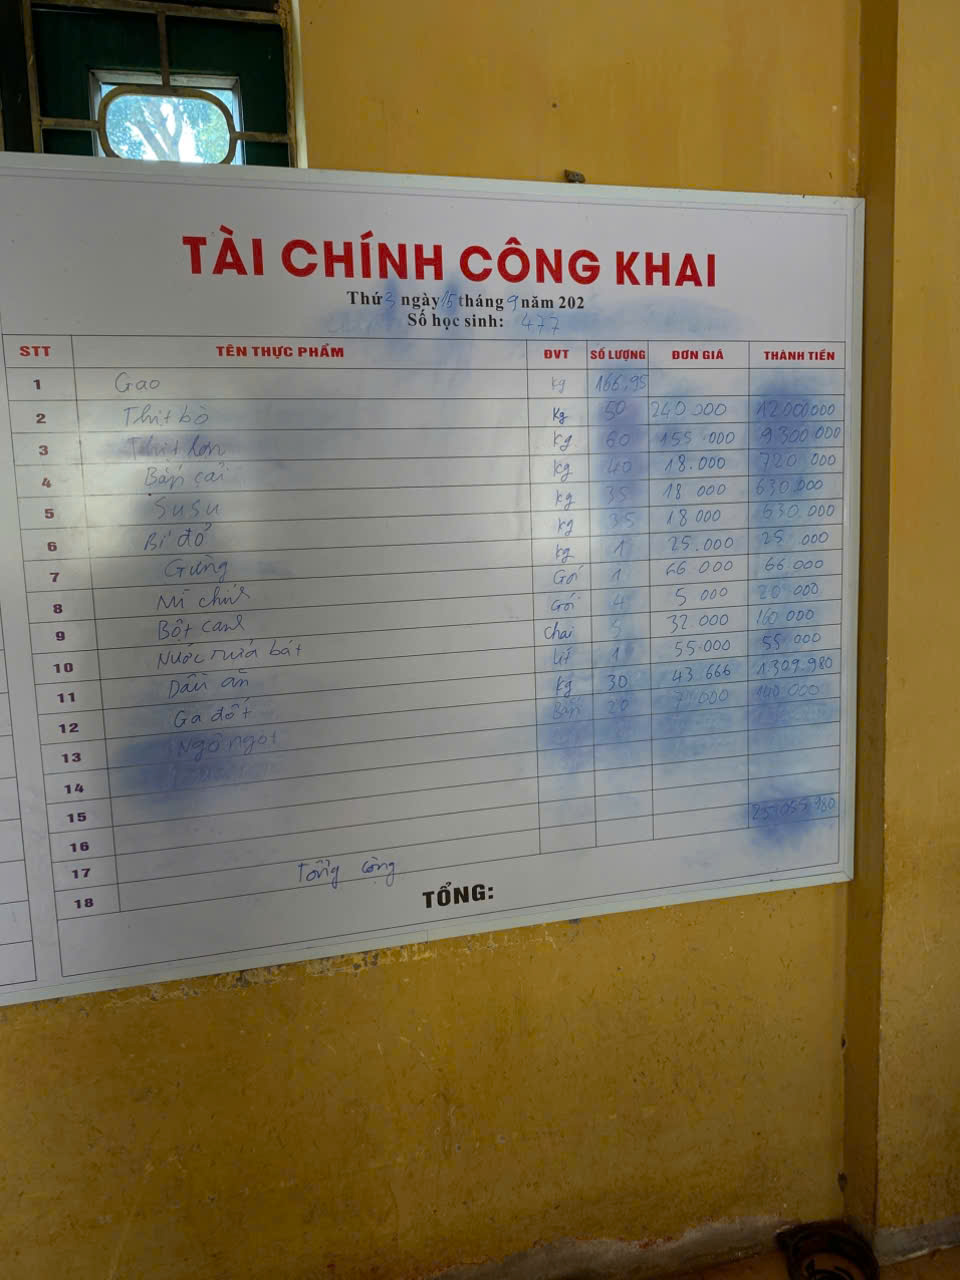 TÀI CHÍNH CÔNG KHAI
Thứ 3 ngày 15 tháng 9 năm 202
Số học sinh: 477
STT TÊN THỰC PHẨM ĐVT SỐ LƯỢNG ĐƠN GIÁ THÀNH TIỀN
1 Gạo kg 166,95
2 Thịt bò Kg 50 240 000 12 000 000
3 Thịt lợn kg 60 155.000 9 300 000
4 Bắp cải kg 40 18.000 720 000
5 Su Su kg 35 18 000 630 000
6 Bí đỏ kg 35 18 000 630.000
7 Gừng kg 1 25.000 25 000
8 Mì chính Gói 1 66 000 66.000
9 Bột canh Gói 4 5 000 20 000
10 Nước rửa bát chai 5 32.000 160 000
11 Dầu ăn lít 1 55.000 55 000
12 Ga đốt kg 30 43.666 1.309.980
13 Ngô ngọt Bắp 20 7.000 140.000
14
15
16
17
18 Tổng cộng 25 055 980
TỔNG: